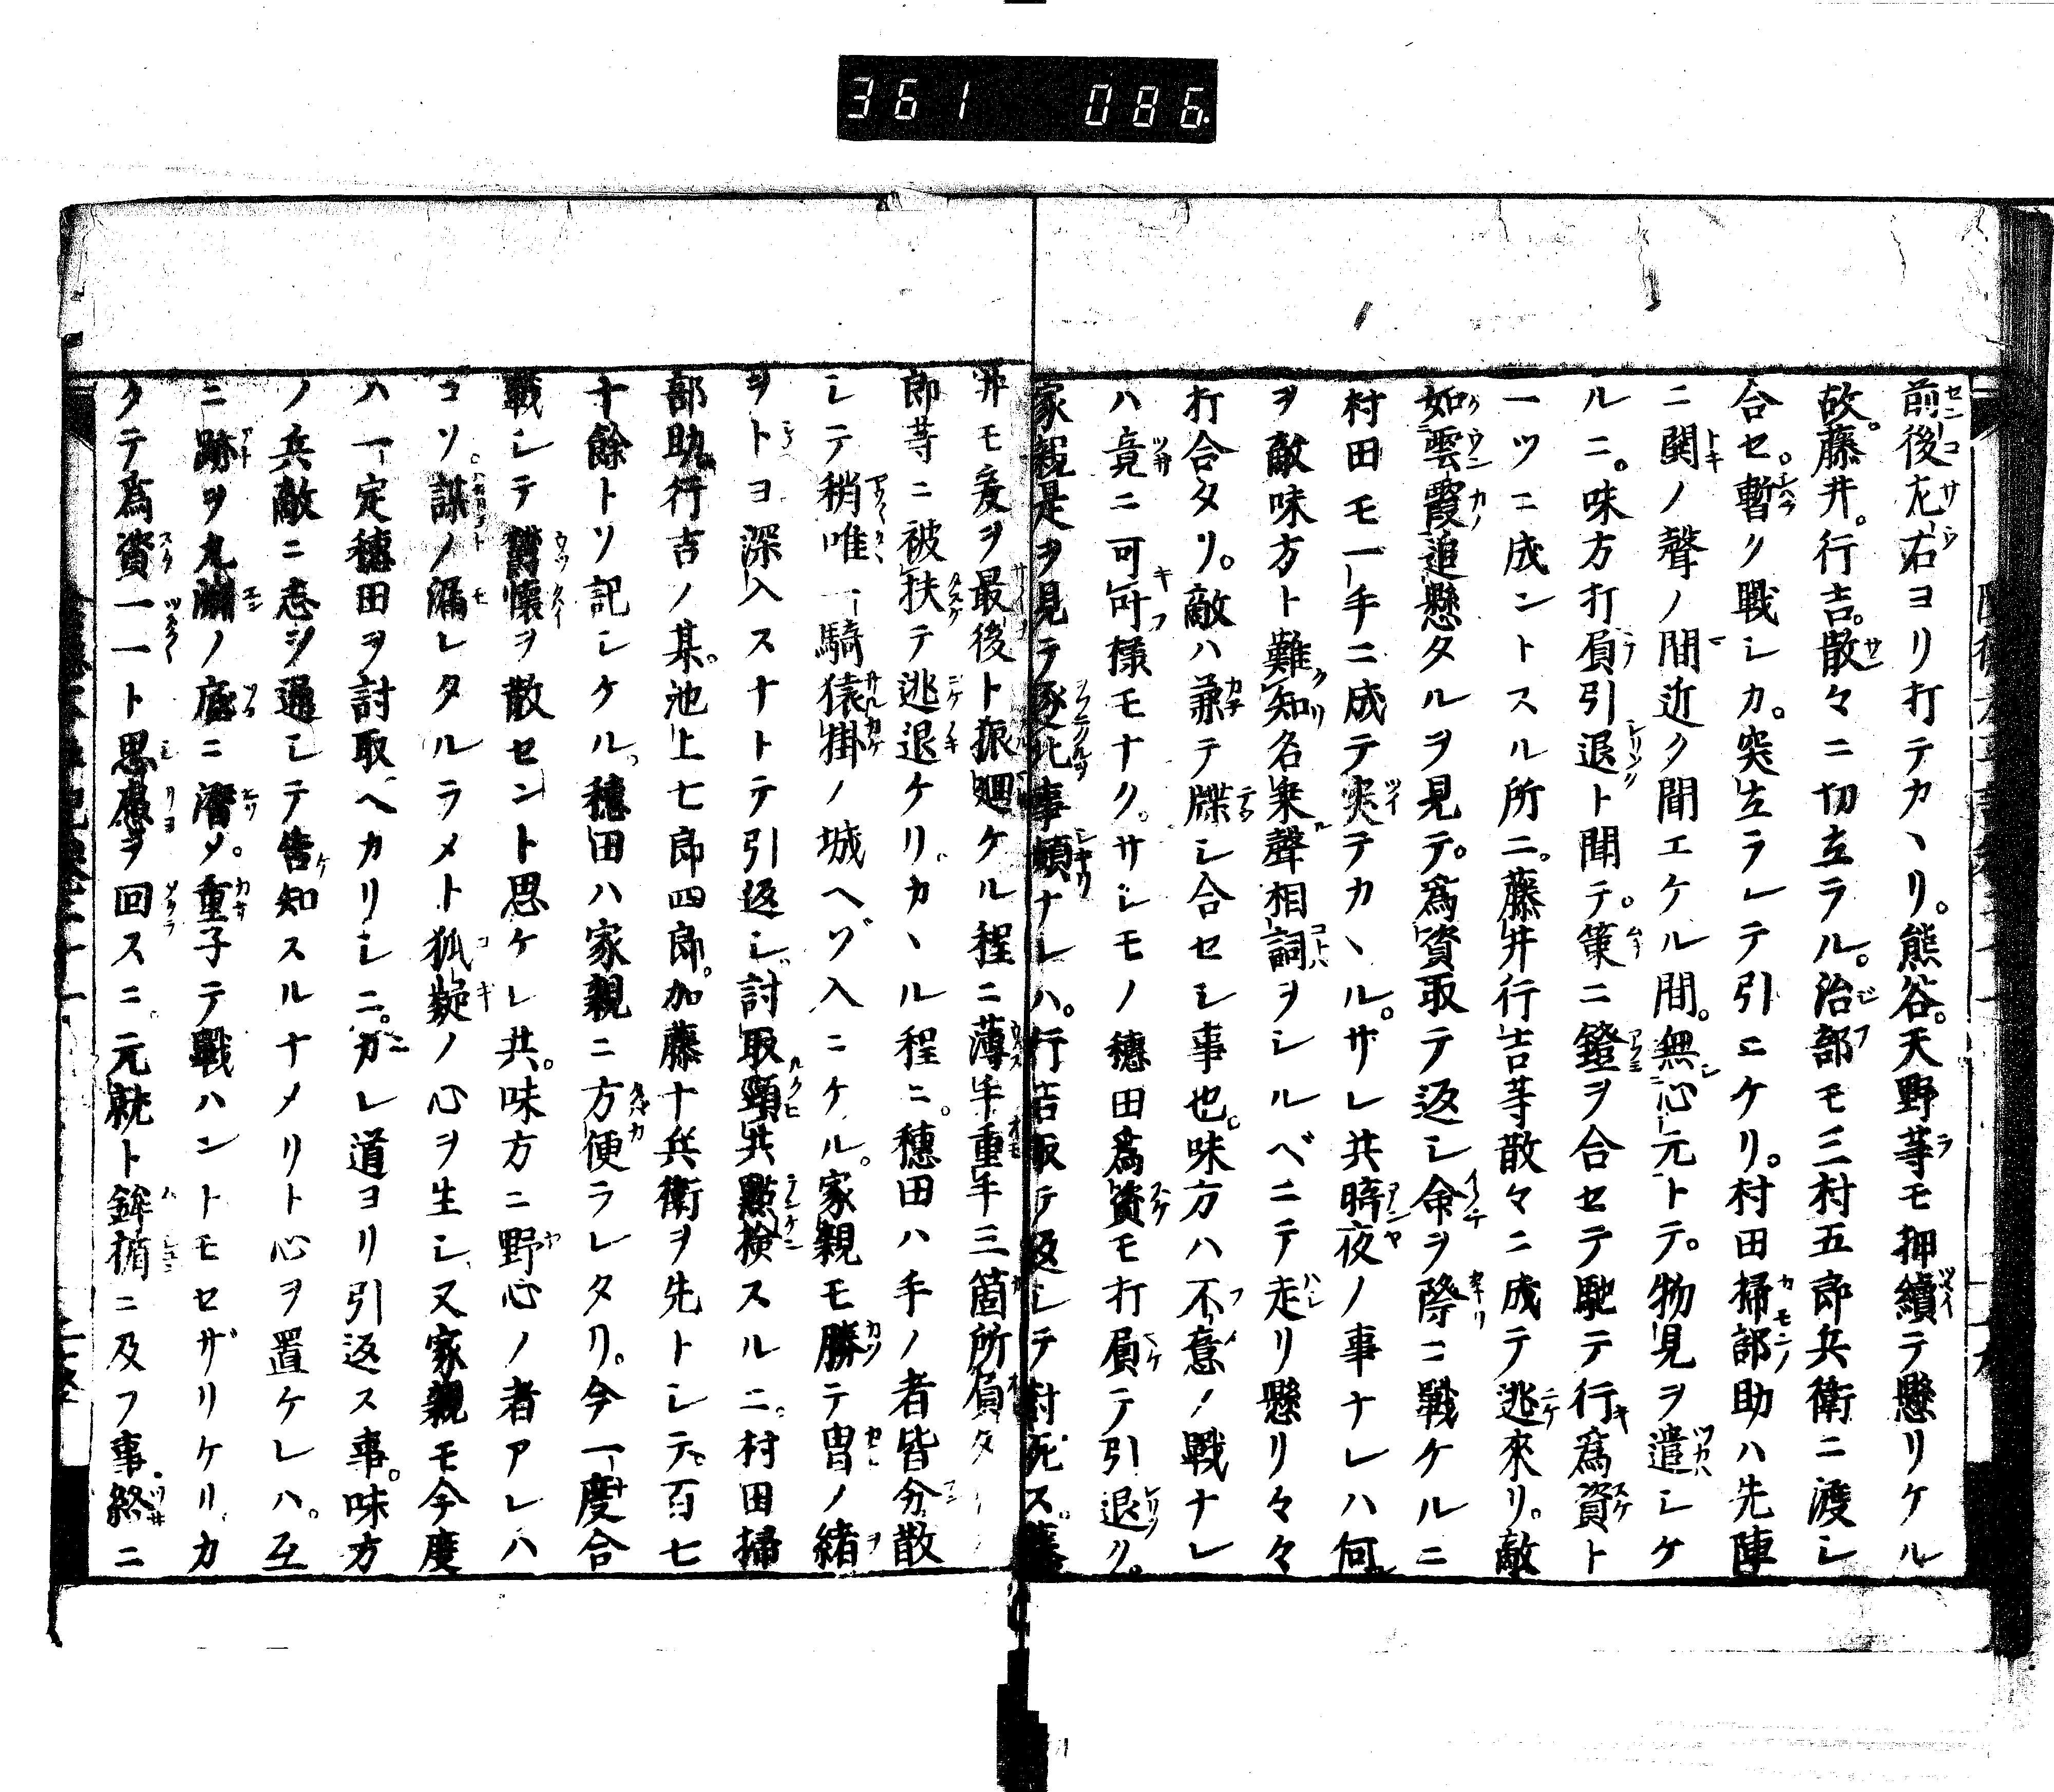 361 086
前後左右ヨリ打テカヽリ。熊谷。天野等モ押續テ懸リケル
故。藤井。行吉。散々ニ切立ラル。治部モ三村五郎兵衛ニ渡シ
合セ。暫ク戰シカ。突立ラレテ引ニケリ。村田掃部助ハ先陣
ニ鬨ノ聲ノ間近ク聞エケル間。無心元トテ。物見ヲ遣シケ
ルニ。味方打負引退ト聞テ。策ニ鐙ヲ合セテ馳テ行爲資ト
一ツニ成ントスル所ニ。藤井行吉等散々ニ成テ逃來リ。敵
如雲霞追懸タルヲ見テ。爲資取テ返シ命ヲ際ニ戰ケルニ
村田モ一手ニ成テ突テカヽル。サレ共暗夜ノ事ナレハ何
ヲ敵味方ト難知名乗聲相詞ヲシルベニテ走リ懸リ々々
打合タリ。敵ハ兼テ牒シ合セシ事也。味方ハ不意ノ戰ナレ
ハ竟ニ可叶様モナク。サシモノ穂田爲資モ打負テ引退ク。
家親是ヲ見テ逐北事頻ナレハ。行吉取テ返シテ討死ス。藤
井モ爰ヲ最後ト振廻ケル程ニ薄手重手三箇所負タ
郎等ニ被扶テ逃退ケリ。カヽル程ニ。穂田ハ手ノ者皆分散
シテ稍唯一騎猿掛ノ城ヘゾ入ニケル。家親モ勝テ冑ノ緒
ヲトヨ深入スナトテ引返シ。討取頸共點檢スルニ。村田掃
部助行吉ノ某。池上七郎四郎。加藤十兵衛ヲ先トシテ。百七
十餘トソ記シケル。穂田ハ家親ニ方便ラレタリ。今一度合
戰シテ鬱懷ヲ散セント思ケレ共。味方ニ野心ノ者アレハ
コソ。謀ノ漏レタルラメト狐疑ノ心ヲ生シ。又家親モ今度
ハ一定穂田ヲ討取ヘカリシニ。カレ道ヨリ引返ス事。味方
ノ兵敵ニ志ヲ通シテ告知スルナメリト心ヲ置ケレハ。互
ニ跡ヲ九淵ノ底ニ潛メ。重子テ戰ハントモセザリケリ。カ
クテ爲資一一ト思慮ヲ回スニ。元就ト鉾楯ニ及フ事。終ニ